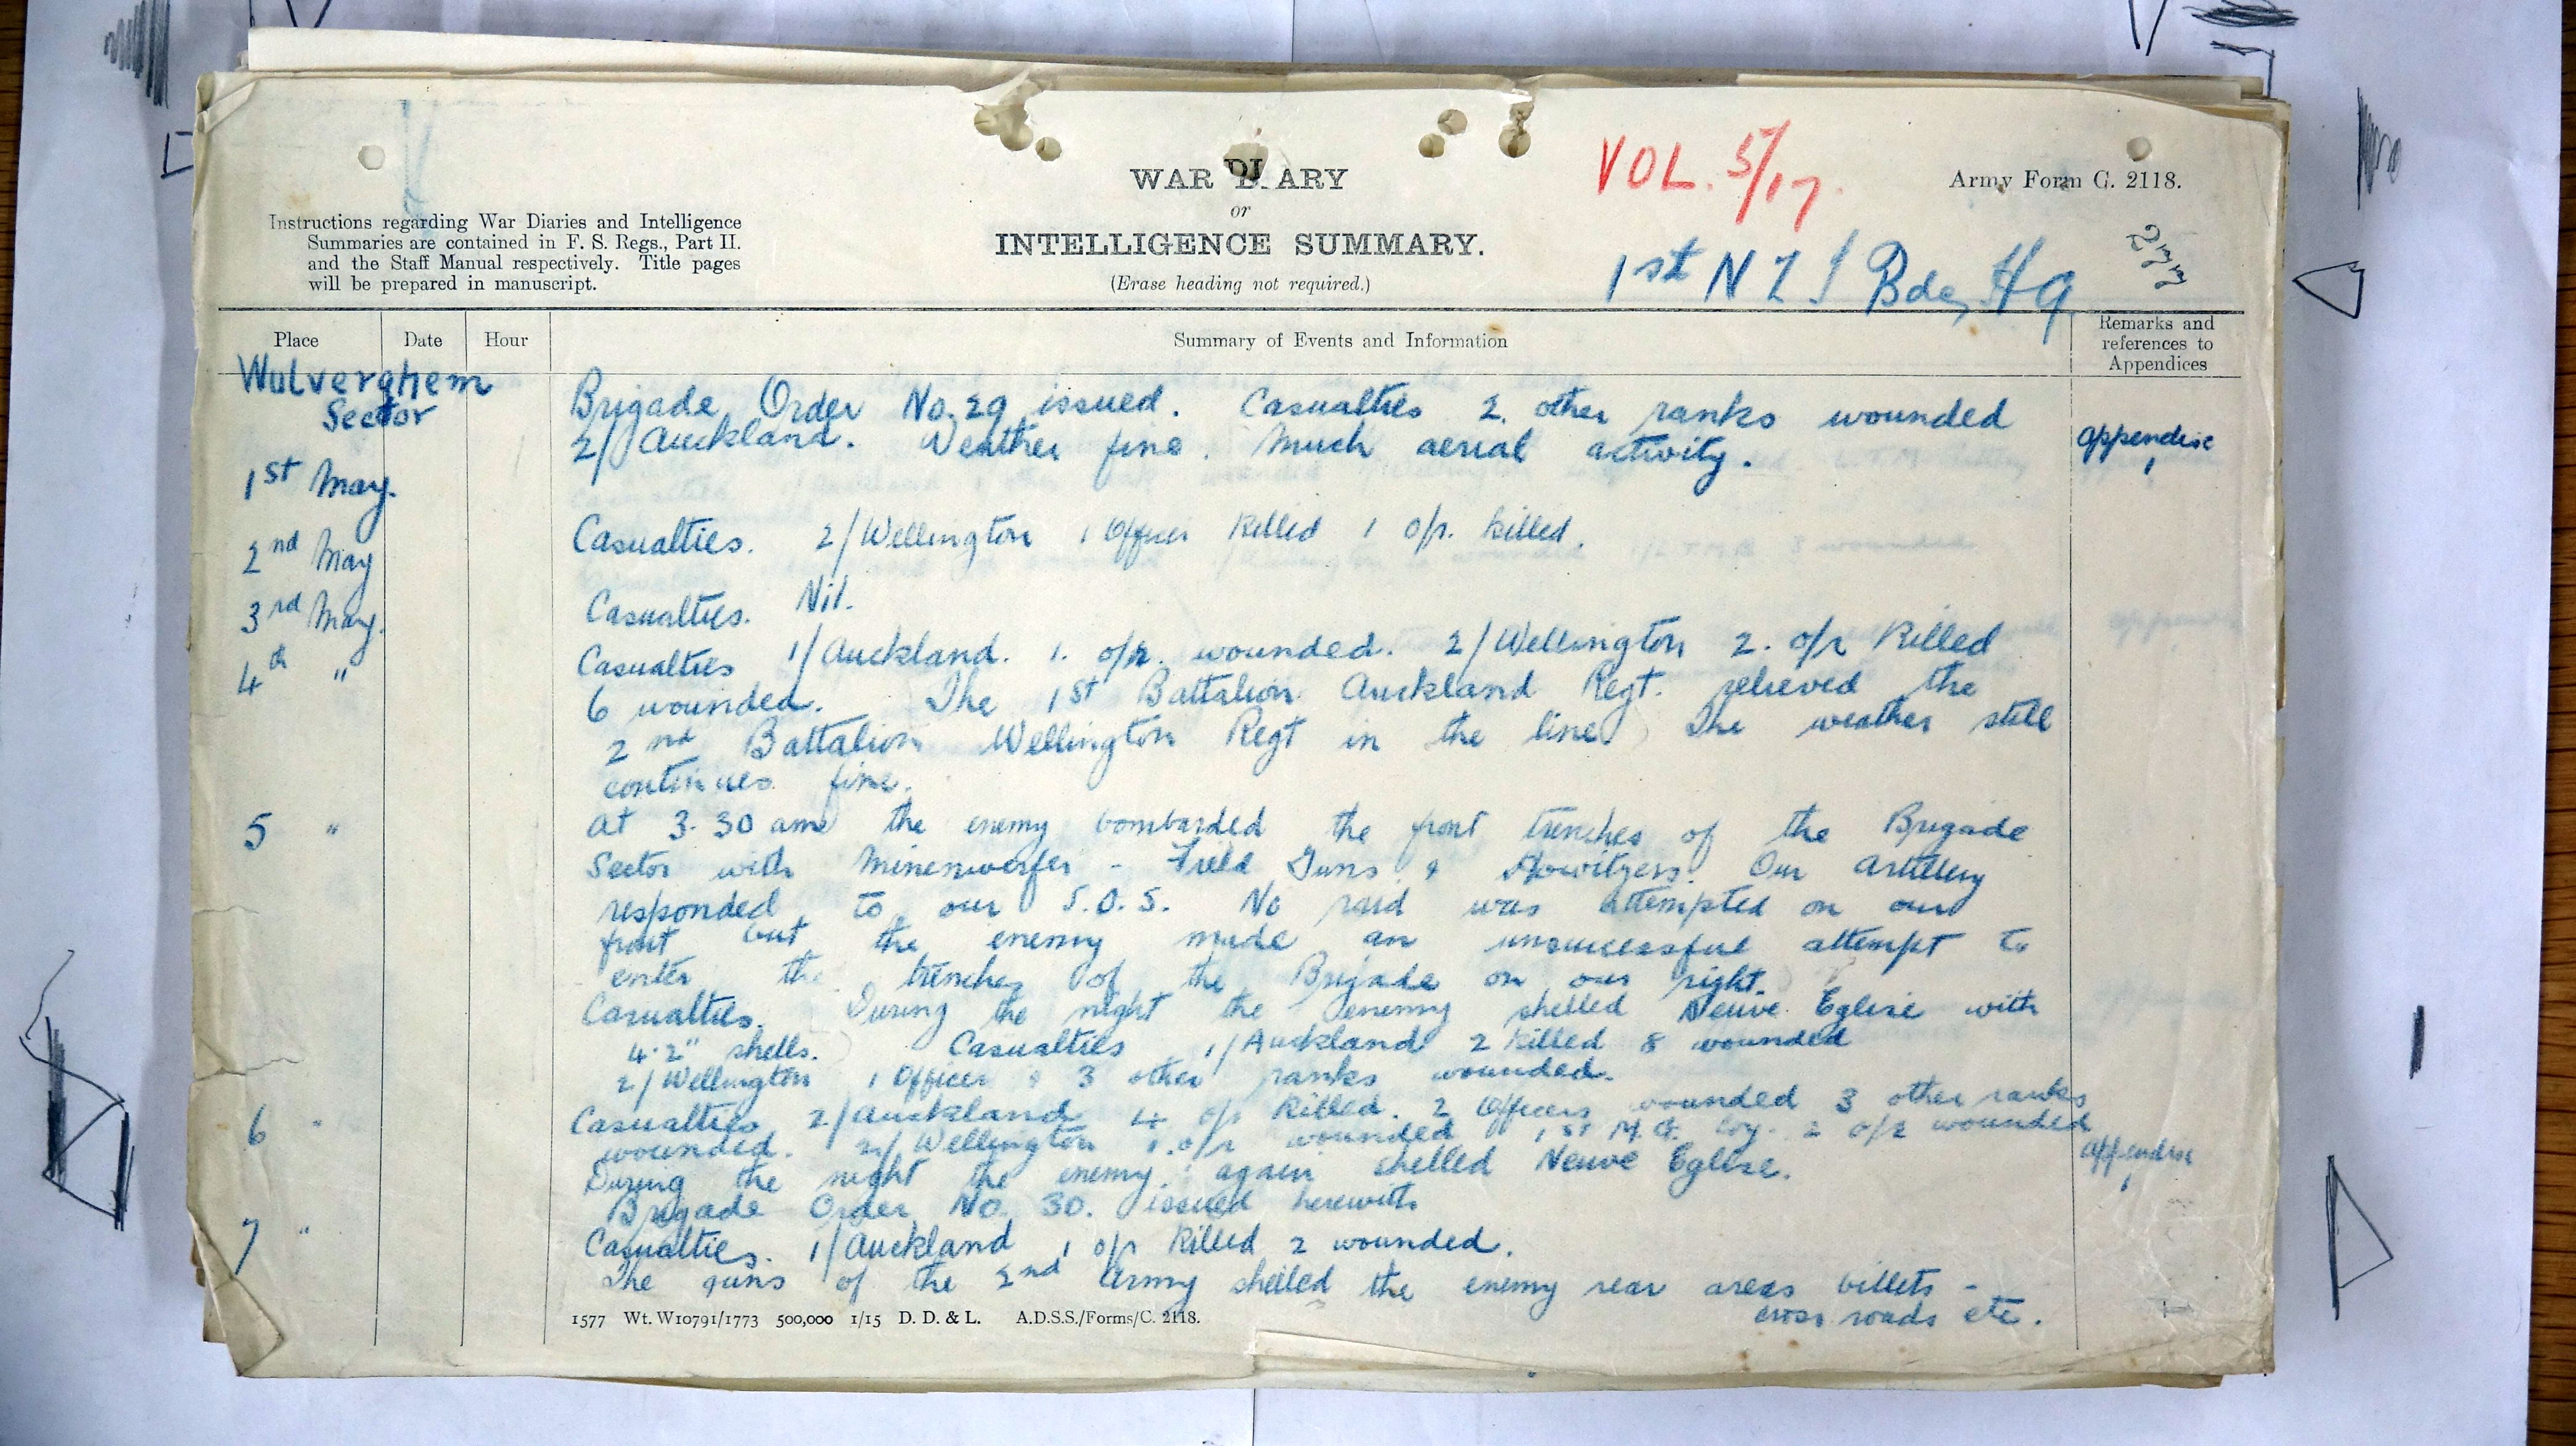 WAR DIARY
or
INTELLIGENCE SUMMARY.
(Erase heading not required.)
VOL. 5/17.
Army Form C. 2118.
1st N Z I Bde, HQ
Instructions regarding War Diaries and Intelligence
Summaries are contained in F. S. Regs., Part II.
and the Staff Manual respectively. Title pages
will be prepared in manuscript.
Place Date Hour Summary of Events and Information Remarks and
references to
Appendices
Wulverghem
Sector
1st May.
Brigade Order No. 29 issued. Casualties 2 other ranks wounded
2/Auckland. Weather fine. Much aerial activity.
appendix
1
2nd May
Casualties. 2/Wellington 1 Officer Killed 1 o/r. killed.
3rd May.
Casualties. Nil.
4th "
Casualties 1/Auckland. 1. o/r. wounded. 2/Wellington 2. o/r Killed
6 wounded. The 1st Battalion Auckland Regt. relieved the
2nd Battalion Wellington Regt in the line. The weather still
continues fine.
5 "
At 3.30 am the enemy bombarded the front trenches of the Brigade
Sector with Minenwerfer - Field Guns & Howitzers. Our Artillery
responded to our S.O.S. No raid was attempted on our
front but the enemy made an unsuccessful attempt to
enter the trenches of the Brigade on our right.
Casualties. During the night the enemy shelled Neuve Eglise with
4.2" shells. Casualties 1/Auckland 2 Killed 8 wounded
2/Wellington 1 Officer & 3 other ranks wounded.
6 "
Casualties 2/Auckland 4 o/r Killed. 2 Officers wounded 3 other ranks
wounded. 2/Wellington 1. o/r wounded 1st M.G. Coy. 2 o/r wounded
During the night the enemy again shelled Neuve Eglise.
Brigade Order No. 30. issued herewith
appendix
1
7 "
Casualties. 1/Auckland 1 o/r Killed 2 wounded.
The guns of the 2nd Army shelled the enemy rear areas billets -
cross roads etc.
1577 Wt. W10791/1773 500,000 1/15 D. D. & L. A.D.S.S./Forms/C. 2118.